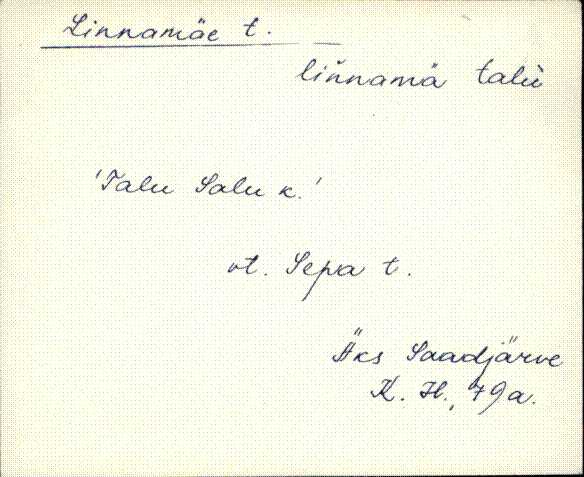 Linnamäe t.
liǹnamä talù
'Talu Salu k.'
vt. Sepa t.
Äks Saadjärve
K. H., 79a.